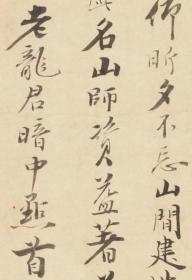 仰昕夕不忘山間建
名山師資益著
老龍君暗中點首